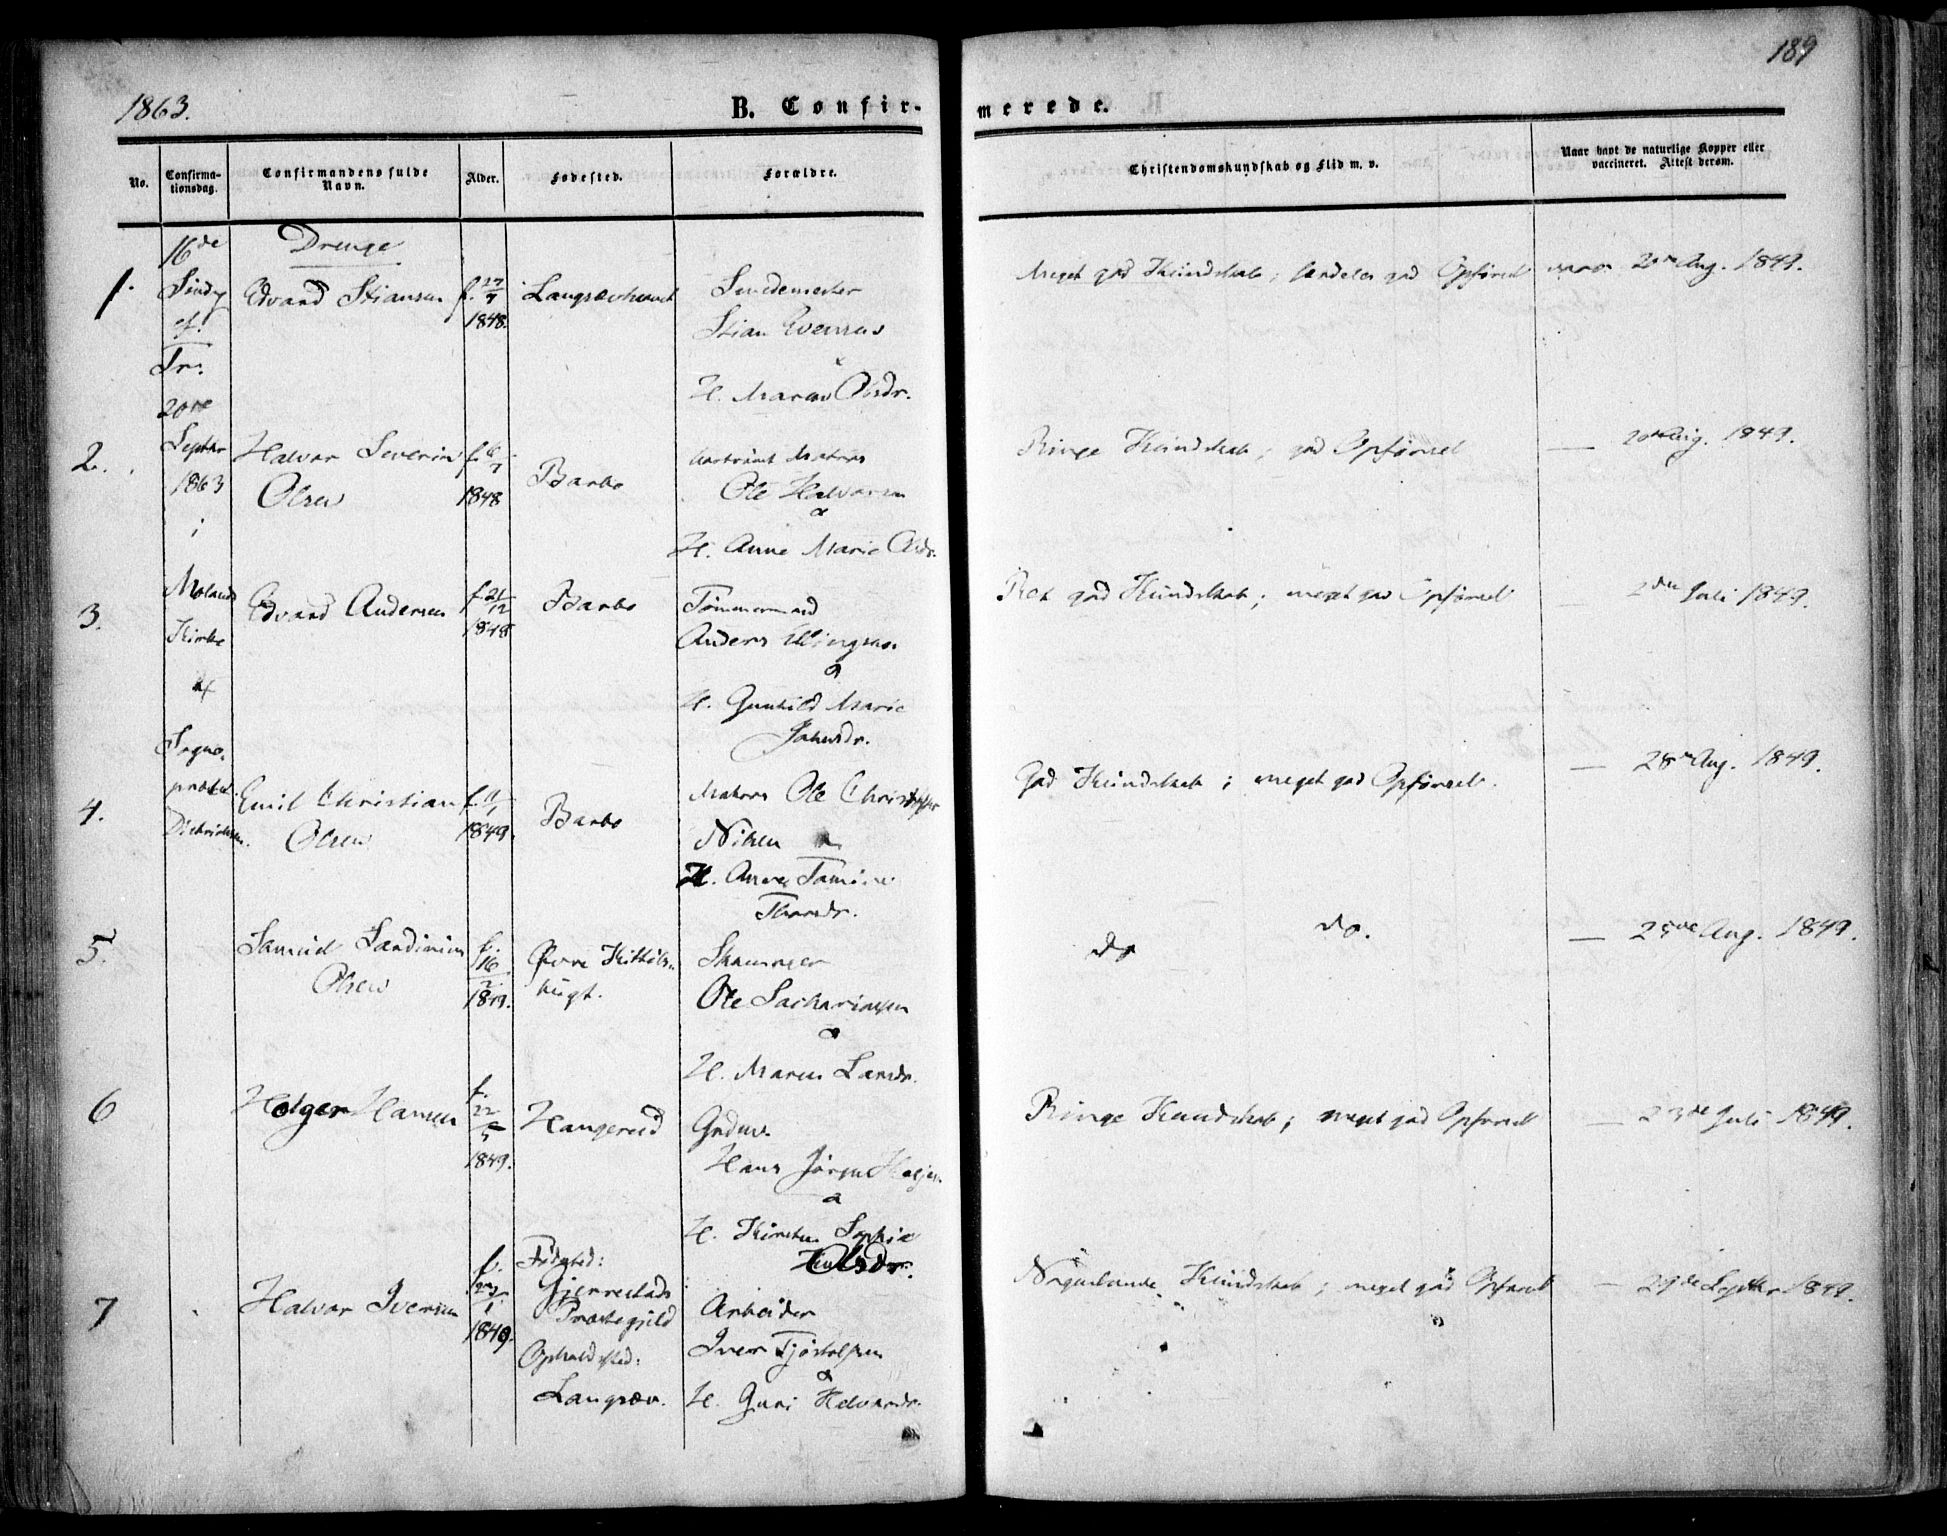 189
1863.
B. Confirmerede.
No.
Confirmationsdag.
Confirmandens fulde Navn.
Alder.
Fødested.
Forældre.
Christendomskundskab og Flid m. v.
Naar havt de naturlige Kopper eller vaccineret. Attest derom.
16de
Drenge
1.
Edvard Stiansen
f. 27/7
1848.
Smedemester
Stian Evensen
H. Maren Olsdr.
Meget god Kundskab; god Opførsel
Aug. 1849.
Tr:
20de
Septbr
1863
i
Molands
Kirke
af
Sogne-
præst
2.
Halvor Severin
Olsen
1848
Barbo
Matros
Ole Halvorsen
&
H. Anne Marie Olsdr.
Ringe Kundskab; god Opførsel
— 20de Aug. 1849.
3.
Edvard Andersen
f. 21/12
1848
Barbo
Tømmermand
Anders Ellingsen
&
H. Gunhild Marie
Jahnsdr.
Ret god Kundskab; meget god Opførsel
— 2den Juli 1849.
4.
Emil Christian
Olsen
f. 11/1
1849.
Barbo
Matros Ole Christopher
Nilsen &
H. Anne Tomine
Thorsdr.
God Kundskab; meget god Opførsel.
— 28de Aug. 1849.
5.
Samuel
Olsen
f.
16
1849.
Øvre
bugt.
Ole Sachariassen
&
H. Maren Larsdr.
do do.
— Aug. 1849.
6
Holger Hansen
f.
22
5
1849.
Hangereid
Grdmd.
Hans Jørgen
&
H. Kirsten Sophie
Olsdr.
Ringe Kundskab; meget god Opførsel
— 23de Juli 1849.
7
Halvor Iversen
f.
27
1
1849.
Fødested:
Gjerrestads
Præstegjeld
Opholdsted:
Langsæv.
Arbeider
Iver Tjøstolfsen
&
H. Guri Halvorsdr.
Nogenlunde Kundskab; meget god Opførsel
— 29de Septbr 1849.